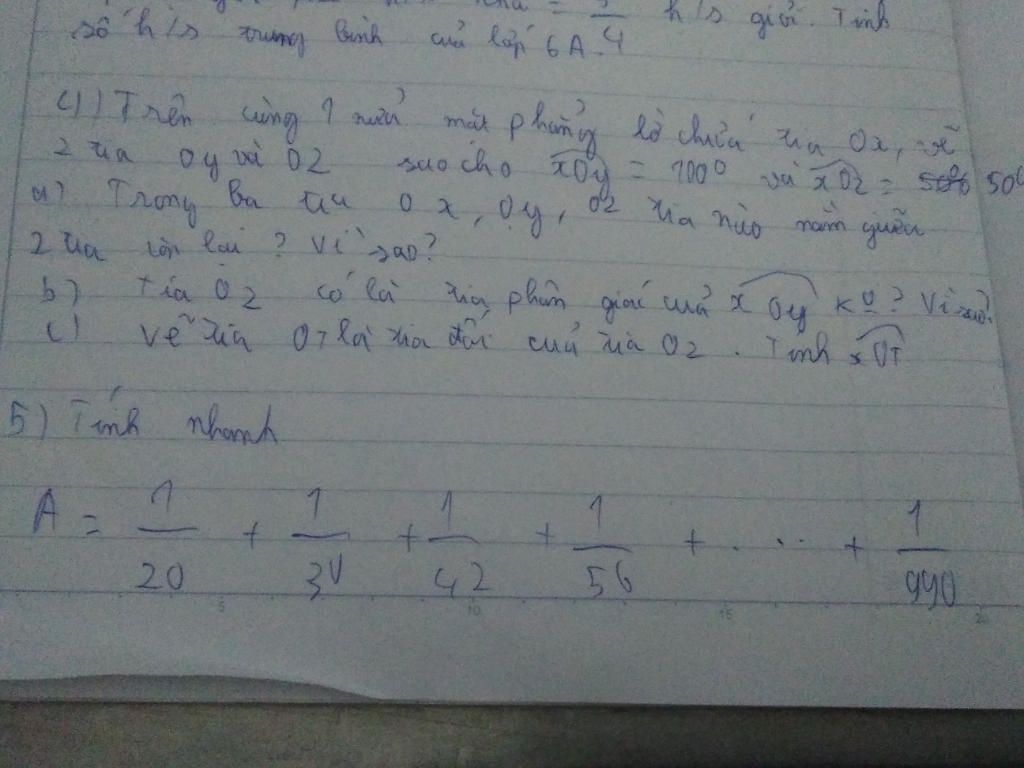 = 3/4 h/s giỏi. Tính
số h/s trung bình của lớp 6A.
4) Trên cùng 1 nửa mặt phẳng bờ chứa tia Ox, vẽ
2 tia Oy và Oz sao cho xOy = 100° và xOz = 50°
a) Trong ba tia Ox, Oy, Oz tia nào nằm giữa
2 tia còn lại ? Vì sao?
b) Tia Oz có là tia phân giác của xOy kº? Vì sao?
c) Vẽ tia OT là tia đối của tia Oz. Tính xOT
5) Tính nhanh
A = 1/20 + 1/30 + 1/42 + 1/56 + . . . + 1/990